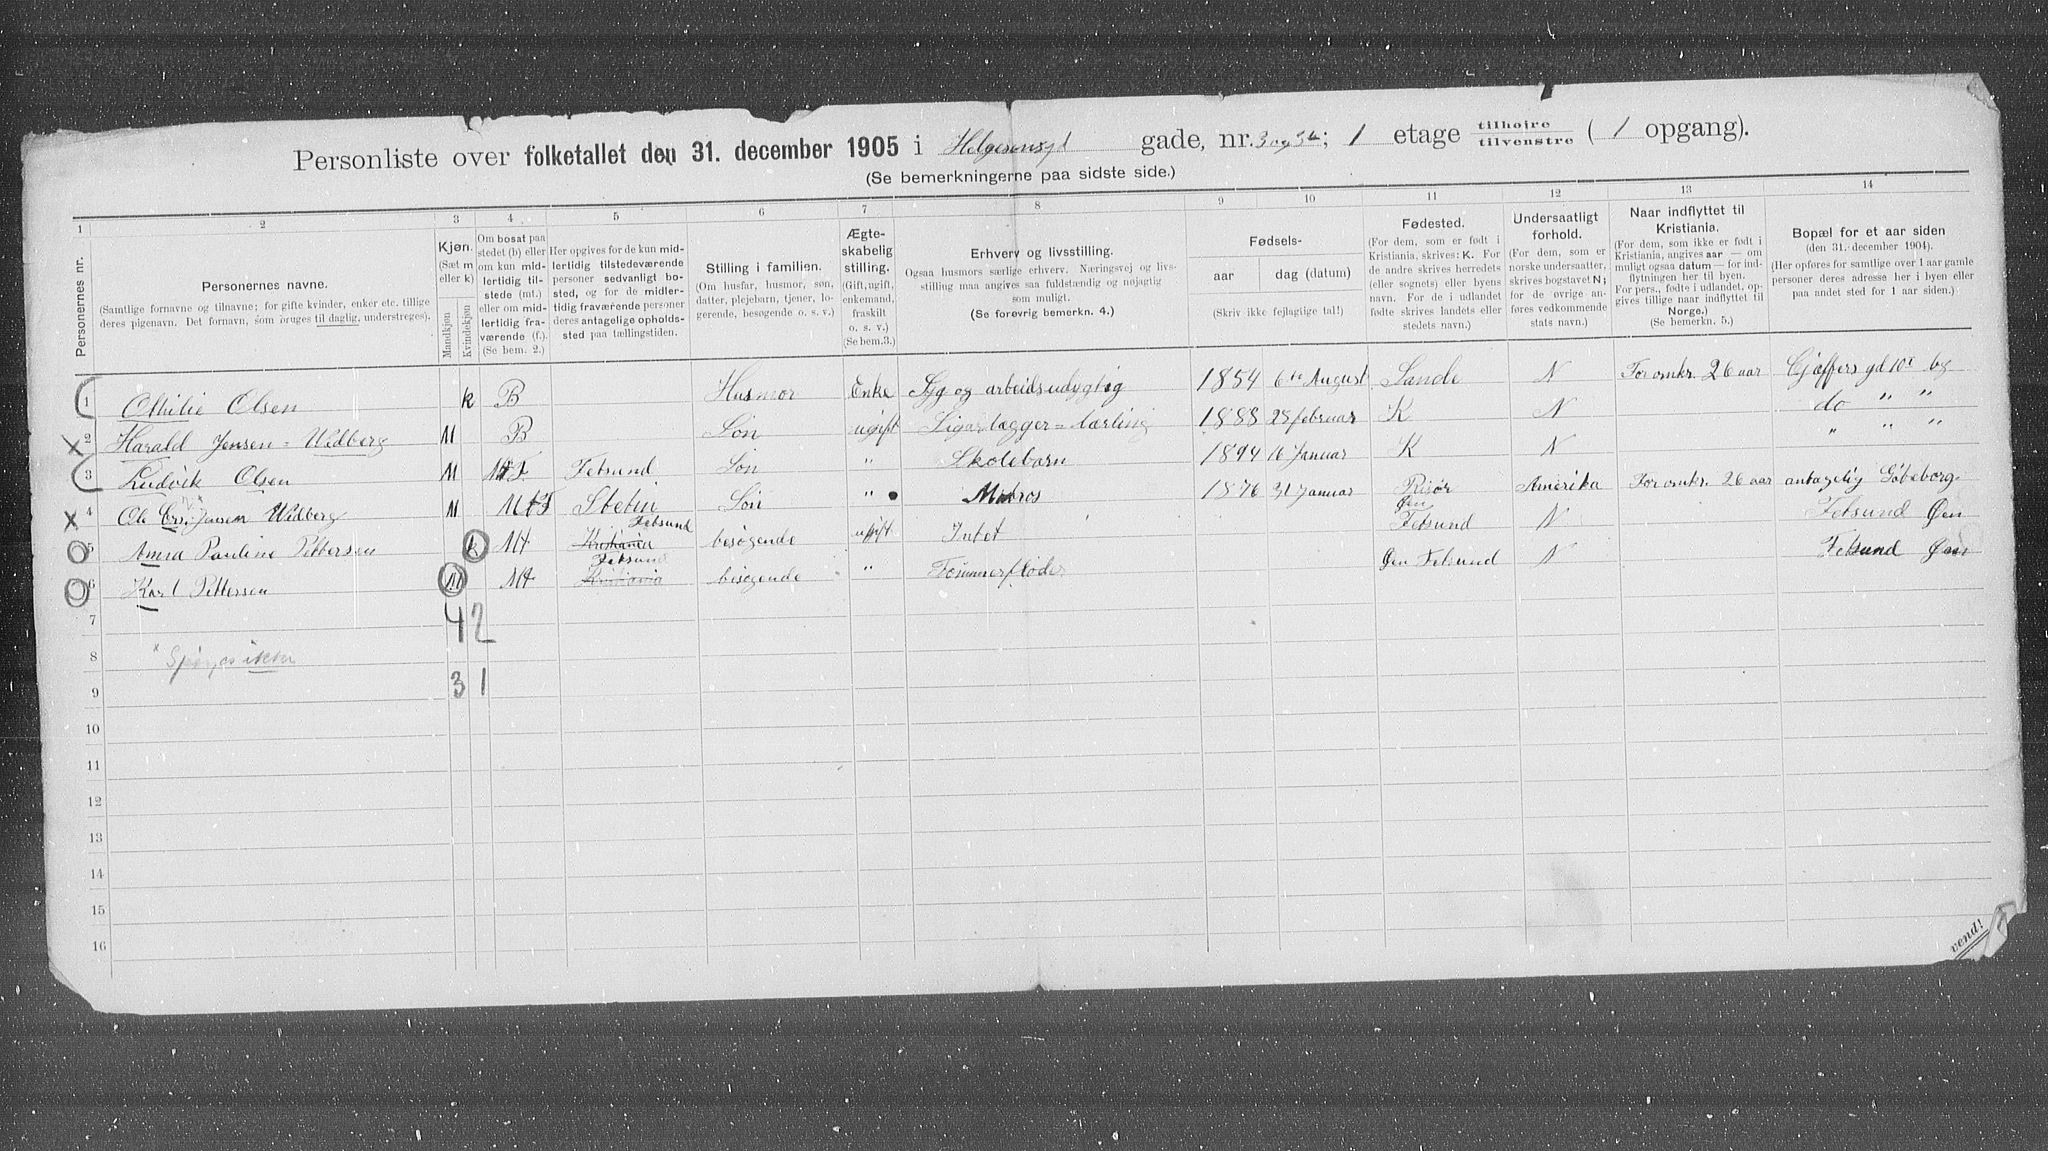 Personliste over folketallet den 31. december 1905 i Helgesensgt gade, nr. 3 og 5; 1 etage tilhøire tilvenstre (1 opgang).
(Se bemerkningerne paa sidste side.)
1 2 3 4 5 6 7 8 9 10 11 12 13 14
Personernes nr.
Personernes navne.
(Samtlige fornavne og tilnavne; for gifte kvinder, enker etc. tillige
deres pigenavn. Det fornavn, som bruges til daglig, understreges).
Kjøn.
(Sæt m
eller k)
Mandkjøn
Kvindekjøn
Om bosat paa
stedet (b) eller
om kun mid-
lertidig til-
stede (mt.)
eller om mid-
lertidig fra-
værende (f.).
(Se bem. 2.)
Her opgives for de kun mid-
lertidig tilstedeværende
personer sedvanligt bo-
sted, og for de midler-
tidig fraværende personer
deres antagelige opholds-
sted paa tællingstiden.
Stilling i familien.
(Om husfar, husmor, søn,
datter, plejebarn, tjener, lo-
gerende, besøgende o. s. v.)
Ægte-
skabelig
stilling.
(Gift, ugift,
enkemand,
fraskilt
o. s. v.)
(Se bem.3.)
Erhverv og livsstilling.
Ogsaa husmors særlige erhverv. Næringsvej og livs-
stilling maa angives saa fuldstændig og nøjagtig
som muligt.
(Se forøvrig bemerkn. 4.)
Fødsels-
aar dag (datum)
(Skriv ikke fejlagtige tal!)
Fødested.
(For dem, som er født i
Kristiania, skrives: K. For
de andre skrives herredets
(eller sognets) eller byens
navn. For de i udlandet
fødte skrives landets eller
stedets navn.)
Undersaatligt
forhold.
(For dem, som er
norske undersaatter,
skrives bogstavet N;
for de øvrige an-
føres vedkommende
stats navn.)
Naar indflyttet til
Kristiania.
(For dem, som ikke er født i
Kristiania, angives aar – om
muligt ogsaa datum – for ind-
flytningen her til byen.
For pers., fødte i udlandet, op-
gives tillige naar indflyttet til
Norge.)
(Se bemerkn. 5.)
Bopæl for et aar siden
(den 31. december 1904).
(Her opføres for samtlige over 1 aar gamle
personer deres adresse her i byen eller
paa andet sted for 1 aar siden.)
1 Othilie Olsen k B Husmor Enke Syg og arbeidsudygtig 1854 6te August Sande N For omkr. 26 aar
2 Harald Jensen = Widberg M B Søn ugift Sigarlægger = lærling 1888 28 februar K N do " "
3 Ludvik Olsen M Fetsund Søn " Skolebarn 1894 16 Januar K N " " "
4 Ole Jensen Widberg M Stetin Søn " Matros 1876 31 Januar Risør Amerika For omkr. 26 aar antagelig Gøteborg
5 Anna Pauline Pettersen k Mt Kristiania Fetsund besøgende ugift Intet Øen Fetsund N Fetsund Øen
6 Karl Pettersen M Mt Kristiania Fetsund besøgende " Tømmerfløder Øen Fetsund N Fetsund Øen
7
4 2
8
9
3 1
10
11
12
13
14
15
16
vend!